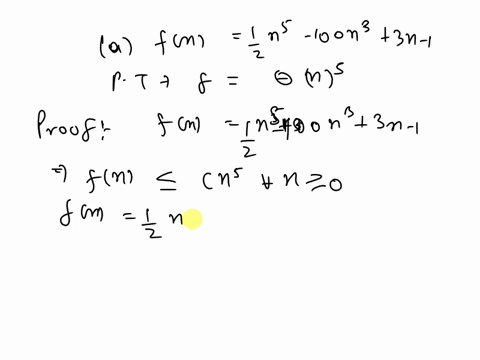 (a) f(n) = 1/2 n⁵ -100n³ +3n-1
P.T → f = Θ(n)⁵
Proof:- f(n) = 1/2 n⁵ 100n³ + 3n-1
⇒ f(n) ≤ Cn⁵ ∀ n ≥ 0
f(n) = 1/2 n